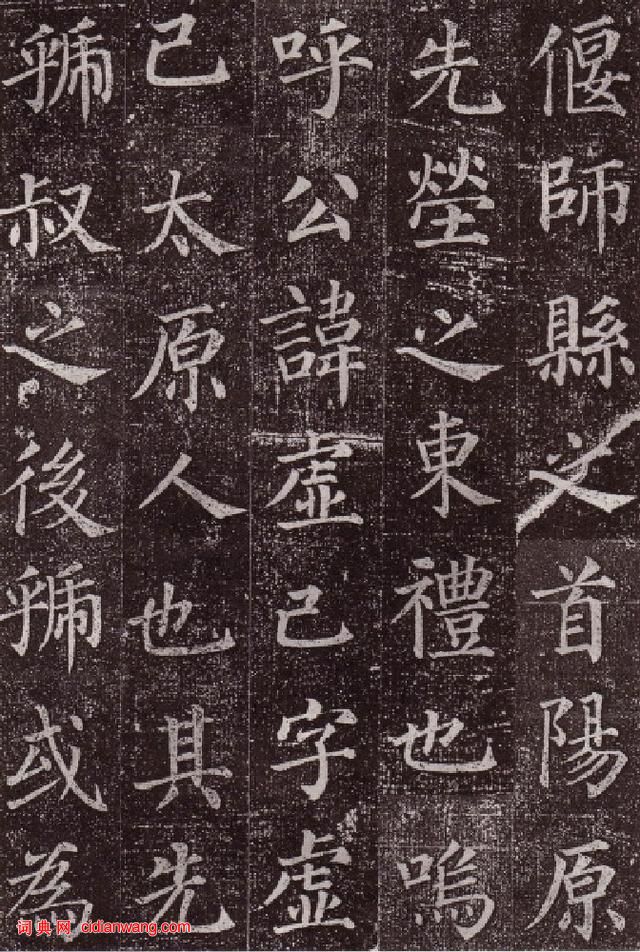 偃師縣之首陽原
先塋之東禮也嗚
呼公諱虚己字虚
己太原人也其先
虢叔之後虢或為
词典网 cidianwang.com